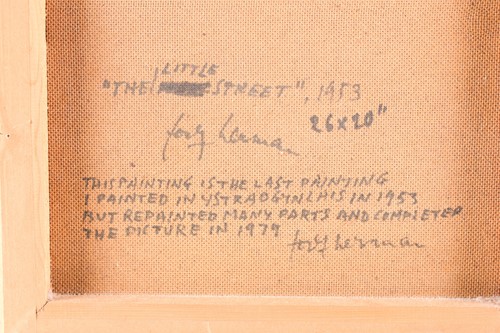 LITTLE
"THE STREET", 1953
26x20"
Josef Herman
THIS PAINTING IS THE LAST PAINTING
I PAINTED IN YSTRADGYNLHIS IN 1953
BUT REPAINTED MANY PARTS AND COMPLETED
THE PICTURE IN 1979
Josef Herman